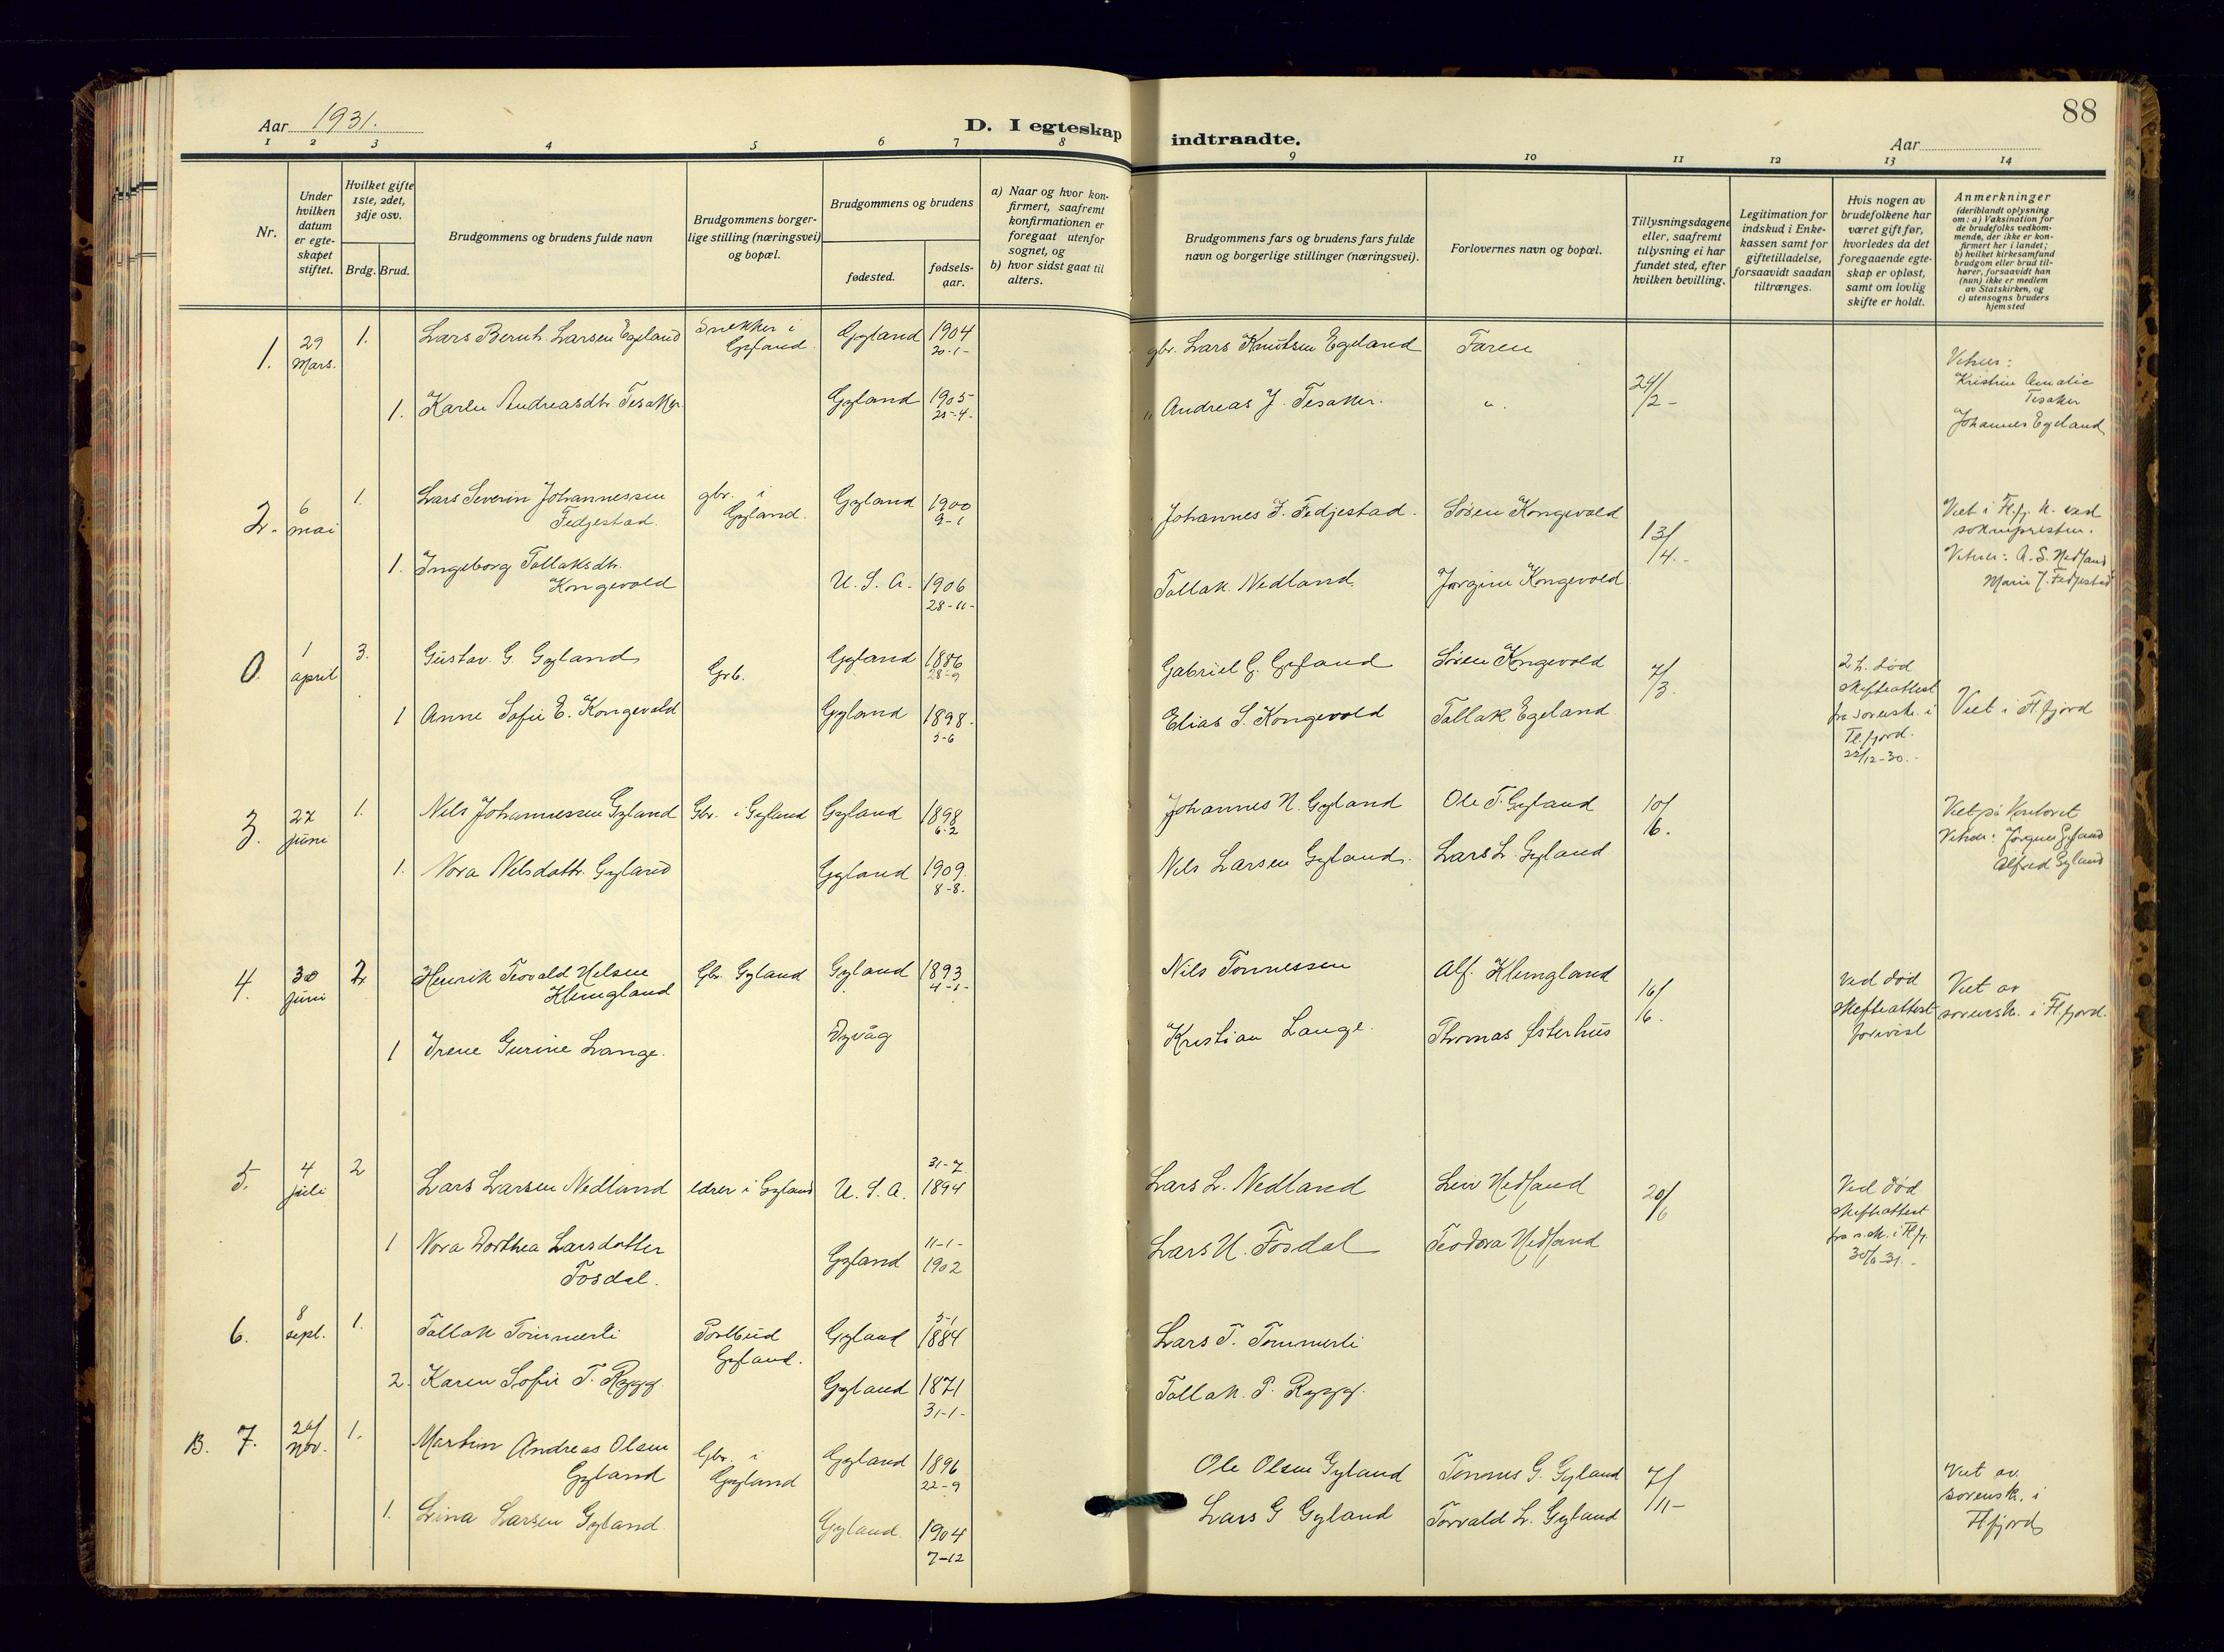 88
Aar 1931.
D. I egteskap indtraadte.
Aar
1 2 3 4 5 6 7 8 9 10 11 12 13 14
Nr.
Under hvilken datum er egteskapet stiftet.
Hvilket gifte 1ste, 2det, 3dje osv.
Brdg. Brud.
Brudgommens og brudens fulde navn
Brudgommens borgerlige stilling (næringsvei) og bopæl.
Brudgommens og brudens
fødested.
fødselsaar.
a) Naar og hvor konfirmert, saafremt konfirmationen er foregaat utenfor sognet, og
b) hvor sidst gaat til alters.
Brudgommens fars og brudens fars fulde navn og borgerlige stillinger (næringsvei).
Forlovernes navn og bopæl.
Tillysningsdagene eller, saafremt tillysning ei har fundet sted, efter hvilken bevilling.
Legitimation for indskud i Enkekassen samt for giftetilladelse, forsaavidt saadan tiltrænges.
Hvis nogen av brudefolkene har været gift før, hvorledes da det foregaaende egteskap er opløst, samt om lovlig skifte er holdt.
Anmerkninger
(deriblandt oplysning om: a) Vaksination for de brudefolks vedkommende, der ikke er konfirmert her i landet; b) hvilket kirkesamfund brudgom eller brud tilhører, forsaavidt han (hun) ikke er medlem av Statskirken, og c) utensogns bruders hjemsted
1. 29 Mars. 1. Lars Bernh. Larsen Egeland Snekker i Gyland Gyland 1904 20-1- gbr. Lars Knutsen Egeland Faren
1. Karen Andreasdtr. Tesaker Gyland 1905 25-4- " Andreas J. Tesaker. " 24/2-
Vitner:
Kristine Amalie
Tesaker
Johannes Egeland
2. 6 mai 1. Lars Severin Johannessen
Fedjestad.
gbr. i Gyland. Gyland 1900 9-1 Johannes F. Fedjestad. Søren Kongevold
1. Ingeborg Tollaksdtr.
Kongevold
U. S. A. 1906 28-11- Tollak Nedland. Jørgine Kongevold 13/4.-
Viet i Fl.fj. k. ved
soknepresten.
Vitner: A. S. Nedland
Marie J. Fedjestad
0. 1 april 3. Gustav. G. Gyland Grb. Gyland 1886 28-9 Gabriel G. Gyland Søren Kongevold 7/3.
1 Anne Sofie E. Kongevold Gyland 1898. 5-6 Elias S. Kongevold Tollak Egeland
skifteattest
fra sorensk. i
Fl.fjord.
22/12-30.-
Viet i Fl.fjord
3. 27 juni 1. Nils Johannessen Gyland Gbr. i Gyland Gyland 1898 6-2 Johannes N. Gyland Ole T. Gyland 10/6.
1. Nora Nilsdattr. Gyland Gyland 1909. 8-8. Nils Larsen Gyland. Lars L. Gyland
Viet på Kontoret
Vitner: Jørgen Gyland
Alfred Gyland
4. 30 juni 2 Henrik Teovald Nilsen
Klungland
Gbr. Gyland Gyland 1893 4-1- Nils Tønnessen Alf. Klungland 16/6.
1 Irene Gurine Lange. Dyvåg Kristian Lange. Thomas Østerhus
Ved død
skifteattest
forevist
Viet av
sorensk. i Fl.fjord.
5. 4 juli 2 Lars Larsen Nedland lærer i Gyland U. S. A. 31-7 1894 Lars L. Nedland Leiv Nedland 20/6
1 Nora Dorthea Larsdotter
Fosdal.
Gyland 11-1- 1902 Lars N. Fosdal Teodora Nedland
Ved død
skifteattest
fra s.sk. i Fl.fj.
30/6-31.-
6. 8 sept. 1. Tollak Tømmerli Postbud Gyland. Gyland 5-1 1884 Lars T. Tømmerli
2. Karen Sofie T. Rygg. Gyland 1871 31-1- Tollak T. Rygg.
B. 7. 20/ nov. 1. Martin Andreas Olsen
Gyland
Gbr. i Gyland Gyland 1896 22-9 Ole Olsen Gyland Tønnes G. Gyland 7/11-
1. Lina Larsen Gyland. Gyland. 1904 7-12 Lars G Gyland Torvald L. Gyland
Viet av
sorensk. i
Fl.fjord